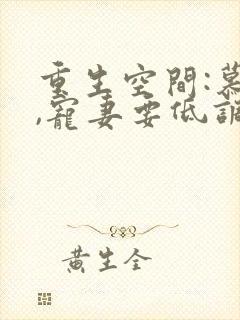 重生空間:慕
,寵妻要低調
黃生全